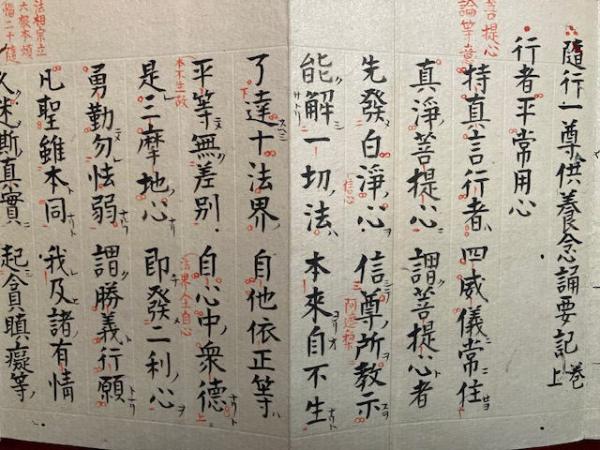 隨行一尊供養念誦要記 卷上
行者平常用心
菩提心
論等意
特真言行者 四威儀常住
真淨菩提心 謂菩提心者
先發白淨心 信尊所教示
信心
能解一切法 本來自不生
了達十法界 自他依正等
平等無差別 自心中衆德
本不生故
法界全自心
是三摩地心 即發二利心
勇勤勿怯弱 謂勝義行願
法相宗立
六根本煩
惱二十隨
凡聖雖本同 我及諸有情
久迷斯真實 起貪瞋癡等